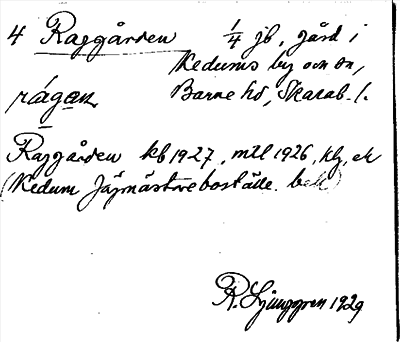 4 Raggården 1/4 jb, gård i
Kedums by och sn,
rágan Barne hd, Skarab. l.
Raggården kb 1927, mtl 1926, klg, ek
(Kedum Jägmästareboställe. bek)
R. Ljunggren 1929